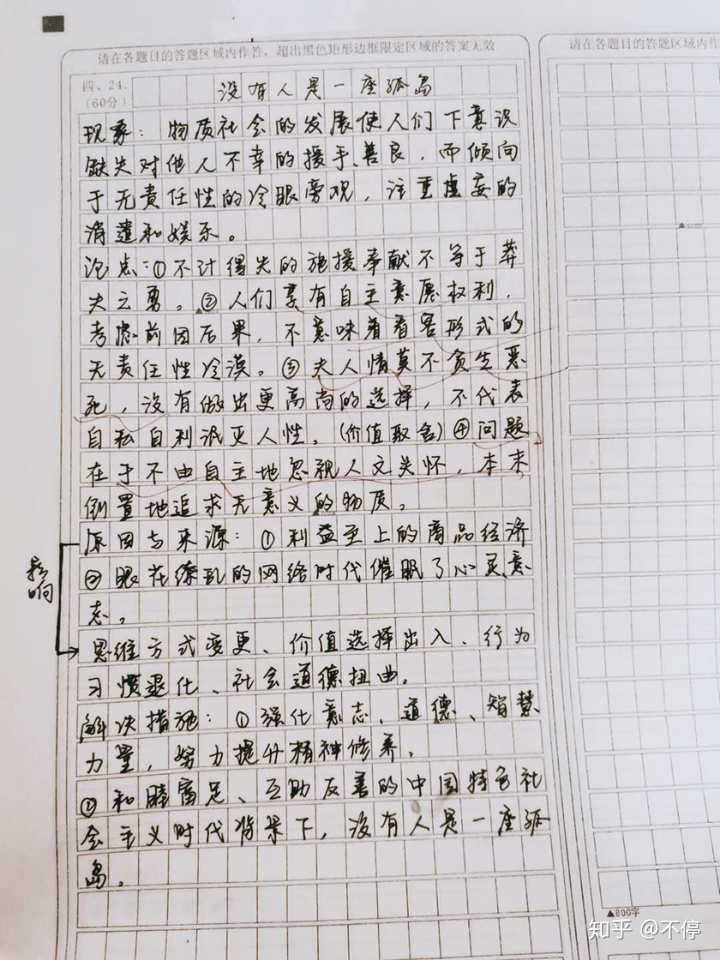 请在各题目的答题区域内作答，超出黑色矩形边框限定区域的答案无效
请在各题目的答题区域内作答，超出黑色矩
四、24.
(60分)
没有人是一座孤岛
现象：物质社会的发展使人们下意识
缺失对他人不幸的援手、善良，而倾向
于无责任性的冷眼旁观，注重虚妄的
消遣和娱乐。
论点：①不计得失的施援奉献不等于莽
夫之勇。②人们享有自主意愿权利，
考虑前因后果，不意味着看客形式的
无责任性冷漠。③夫人情莫不贪生恶
死，没有做出更高尚的选择，不代表
自私自利泯灭人性。(价值取舍)④问题
在于不由自主地忽视人文关怀，本末
倒置地追求无意义的物质。
原因与来源：①利益至上的商品经济
②眼花缭乱的网络时代催眠了心灵意
志。
影响
思维方式变更、价值选择出入、行为
习惯退化、社会道德扭曲。
解决措施：①强化意志、道德、智慧
力量，努力提升精神修养。
②和睦富足、互助友善的中国特色社
会主义时代背景下，没有人是一座孤
岛。
▲800字
知乎 @不停